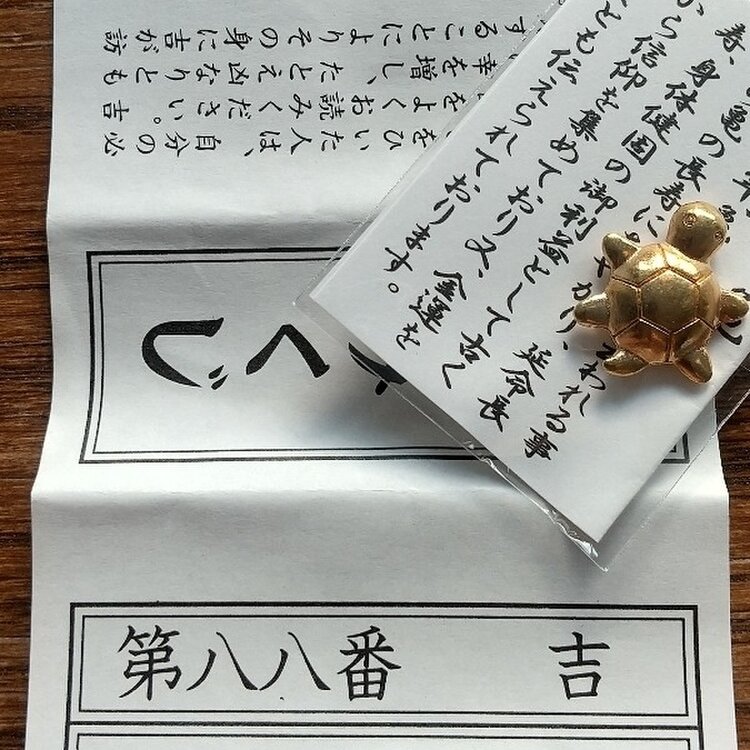 をひいた人は、自分の必
をよくお読みください。吉
幸を増し、たとえ凶なりとも
することによりその身に吉が訪
くじ
われる事
亀の長寿に やかり、延命長
寿、身体健固の御利益として古く
から信仰を集めており又、金運を
とも伝えられております。
第八八番 吉